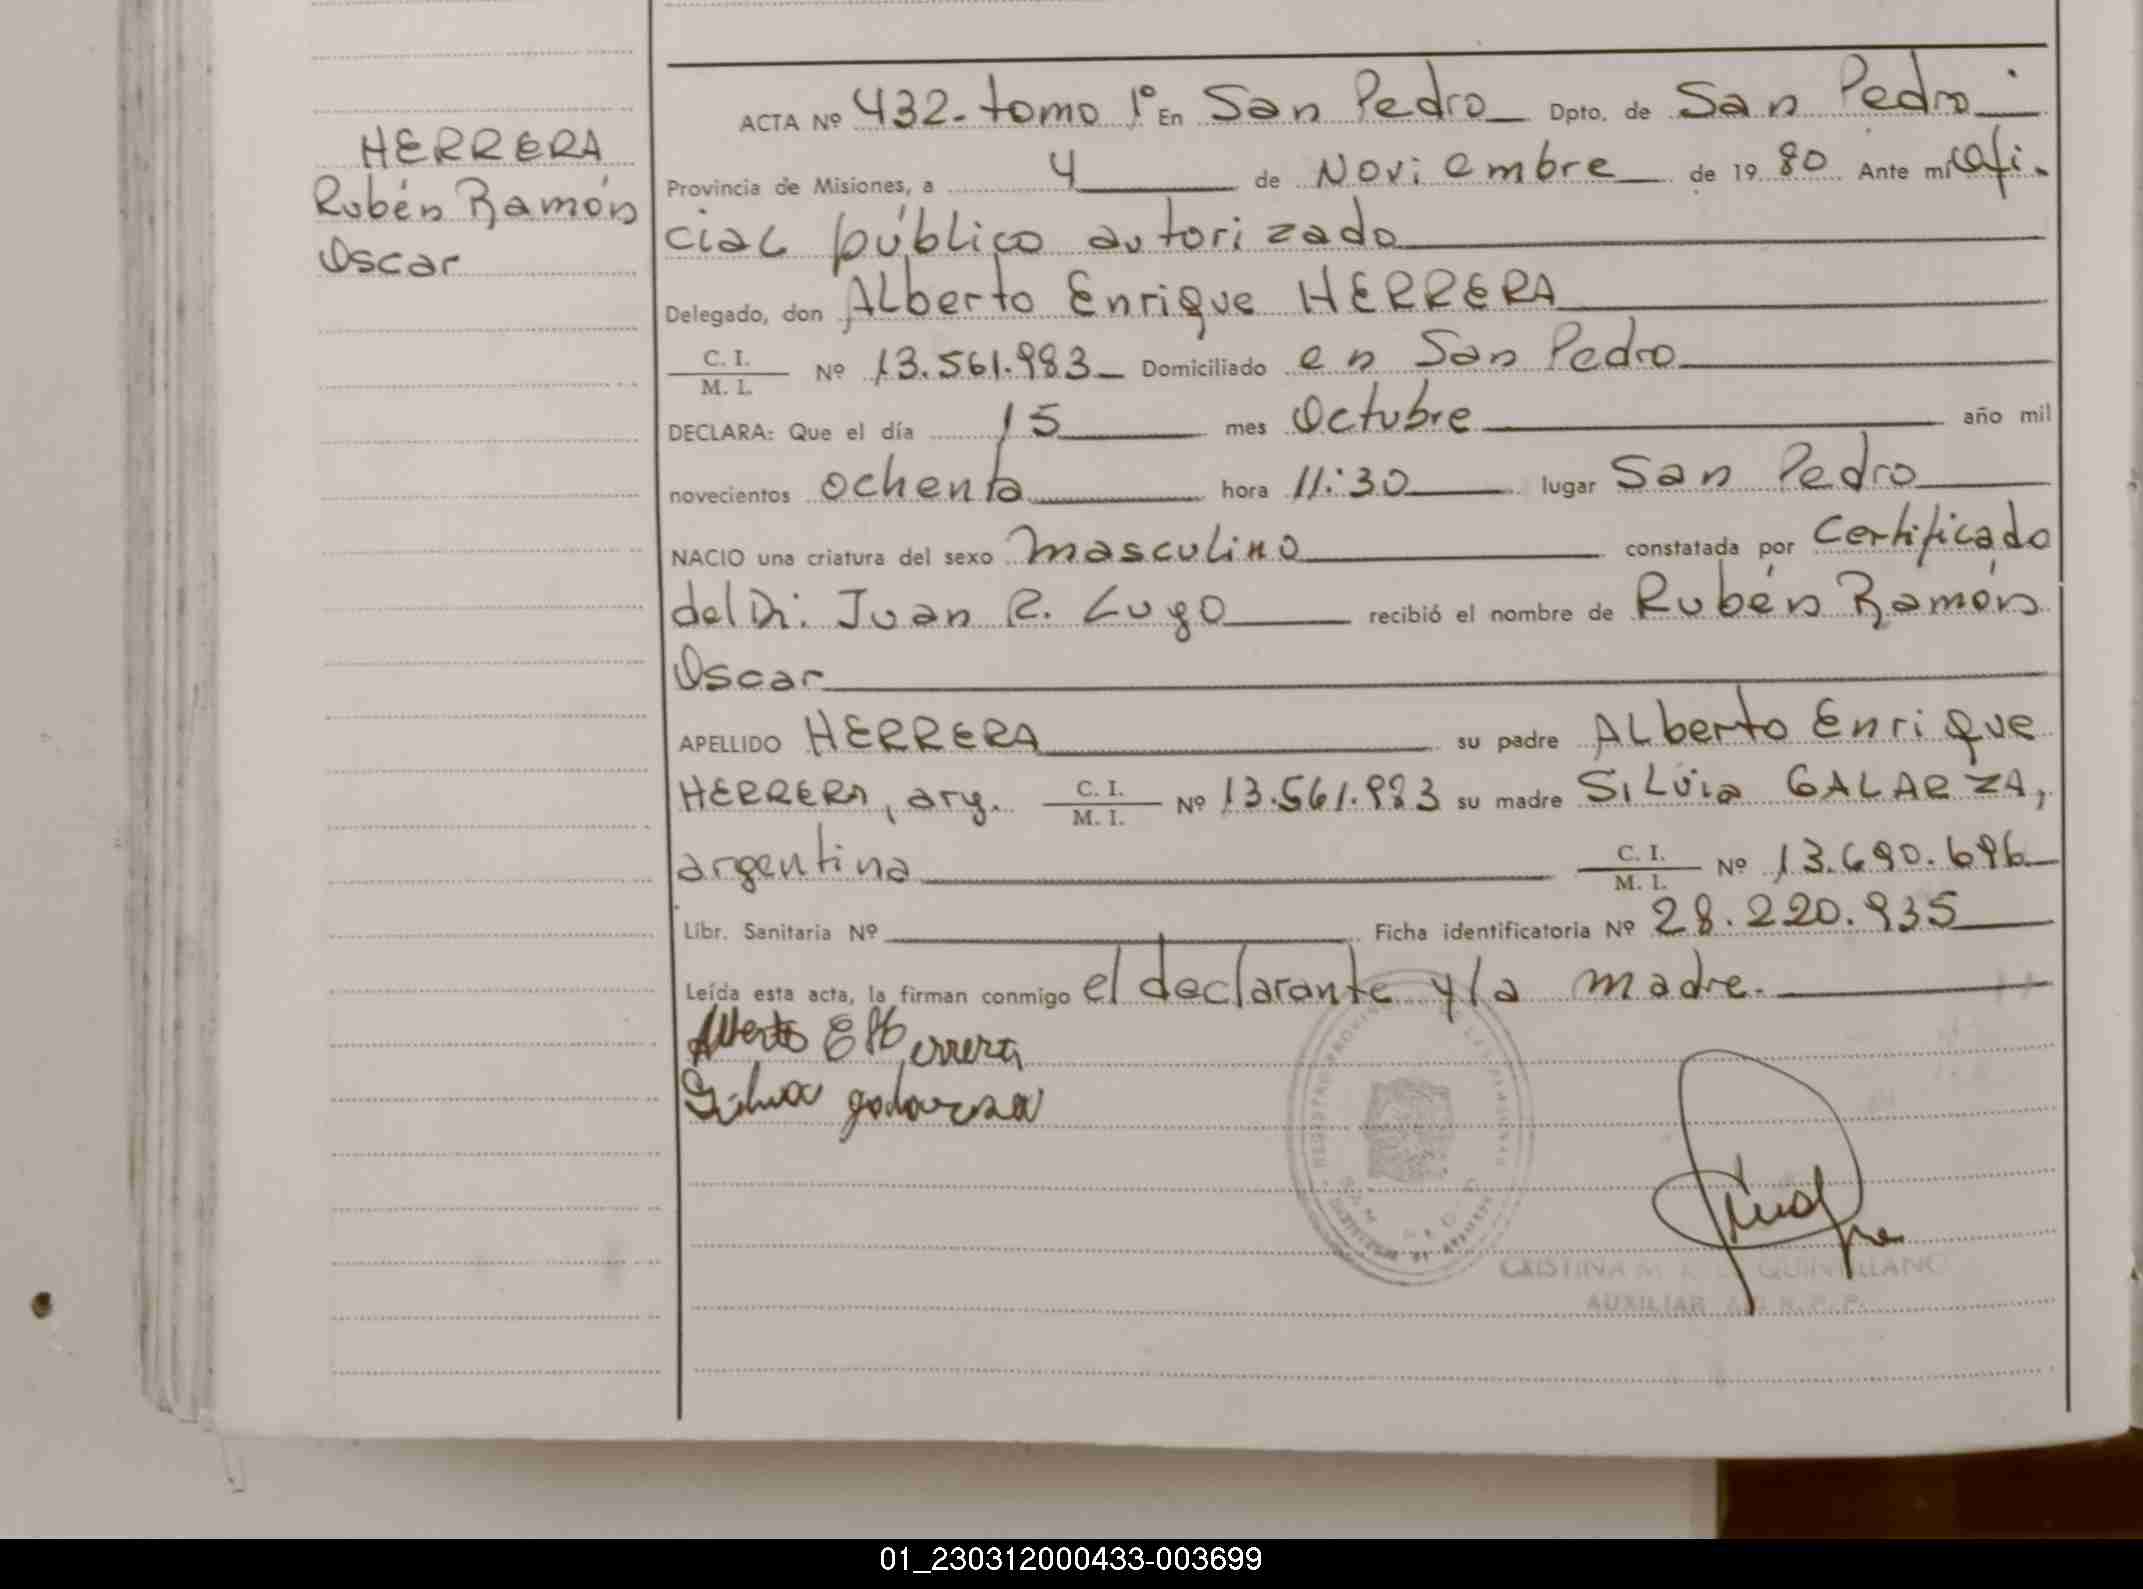 HERRERA
Rubén Ramón
Oscar
ACTA Nº 432- tomo 1º En San Pedro Dpto. de San Pedro
Provincia de Misiones, a 4 de Noviembre de 1980 Ante mí Ofi-
cial público autorizado
Delegado, don Alberto Enrique HERRERA
C. I.
M. I. Nº 13.561.983 Domiciliado en San Pedro
DECLARA: Que el día 15 mes Octubre año mil
novecientos ochenta hora 11:30 lugar San Pedro
NACIO una criatura del sexo masculino constatada por Certificado
del Dr. Juan R. Lugo recibió el nombre de Rubén Ramón
Oscar
APELLIDO HERRERA su padre Alberto Enrique
HERRERA, arg. C. I. M. I. Nº 13.561.983 su madre Silvia GALARZA,
argentina C. I. M. I. Nº 13.690.696
Libr. Sanitaria Nº Ficha identificatoria Nº 28.220.935
Leída esta acta, la firman conmigo el declarante y la madre.
Alberto E Herrera
Silvia galarza
CRISTINA M QUINTILIANO
AUXILIAR
01_230312000433-003699